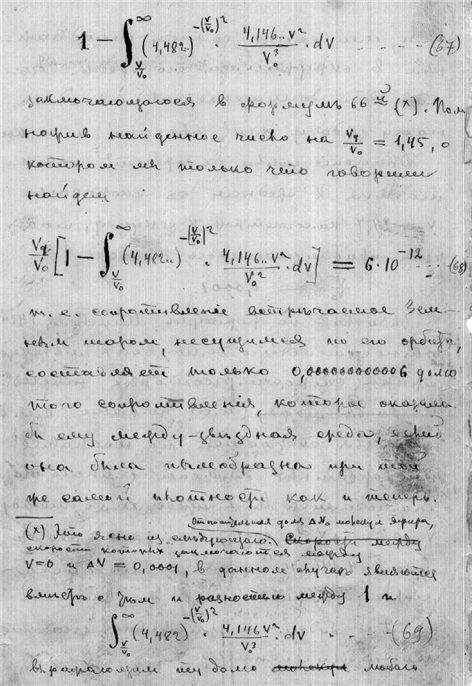 1 − ∫_{v/v₀}^{∞} (4,482..)^{−(v/v₀)²} · 4,146..v²/v₀³ · dv - - - - - (67)
заключающагося в формулѣ 66 (x). Пом
ножив найденное число на v₉/v₀ = 1,45, о
котором мы только что говорили
найдем
v₉/v₀ [1 − ∫_{v/v₀}^{∞} (4,482..)^{−(v/v₀)²} · 4,146..v²/v₀² · dv] = 6·10⁻¹² - - (68)
т. е. сопротивленіе встрѣчаемое Зем-
ным шаром, несущимся по его орбитѣ,
составляет только 0,000000000006 долю
того сопротивленія, которое оказала
бы ему между-звѣздная среда, если б
она была пылеобразна при той
же самой плотности как и теперь.
Относительная доля ΔN₀ молекул эфира,
(x) Это ясно из слѣдующаго. Скорости между
скорости которых заключаются между
V=0 и ΔV = 0,0001, в данном случаѣ является
вмѣстѣ с тѣм и разностью между 1 и
∫_{v/v₀}^{∞} (4,482)^{−(v/v₀)²} · 4,146v²/v₀³ · dv - - - (69)
выражающим ту долю молекул